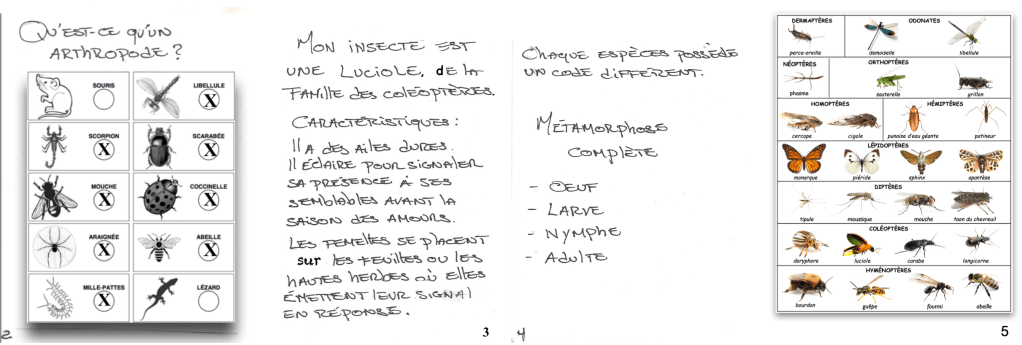 Qu'est-ce qu'un
arthropode ?
SOURIS
LIBELLULE
X
SCORPION
X
SCARABÉE
X
MOUCHE
X
COCCINELLE
X
ARAIGNÉE
X
ABEILLE
X
MILLE-PATTES
X
LÉZARD
2
Mon insecte est
une Luciole, de la
famille des coléoptères.
Caractéristiques :
Il a des ailes dures.
Il éclaire pour signaler
sa présence à ses
semblables avant la
saison des amours.
Les femelles se placent
sur les feuilles ou les
hautes herbes où elles
émettent leur signal
en réponse.
3
Chaque espèces possède
un code différent.
Métamorphose
complète
- Oeuf
- Larve
- Nymphe
- Adulte
4
DERMAPTÈRES
ODONATES
perce-oreille
demoiselle
libellule
NÉOPTÈRES
ORTHOPTÈRES
phasme
sauterelle
grillon
HOMOPTÈRES
HÉMIPTÈRES
cercope
cigale
punaise d'eau géante
patineur
LÉPIDOPTÈRES
monarque
piéride
sphinx
apantèse
DIPTÈRES
tipule
moustique
mouche
taon du chevreuil
COLÉOPTÈRES
doryphore
luciole
carabe
longicorne
HYMÉNOPTÈRES
bourdon
guêpe
fourmi
abeille
5